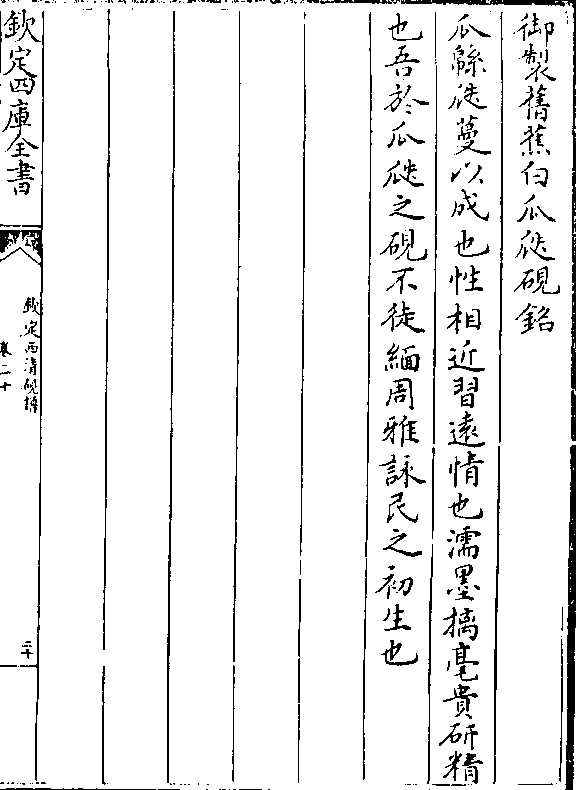 御製舊蕉白瓜瓞硯銘
瓜緜瓞蔓以成也性相近習遠情也濡墨摛毫貴研精
也吾於瓜瓞之硯不徒緬周雅詠民之初生也
欽定四庫全書
欽定西清硯譜
卷二十
二十